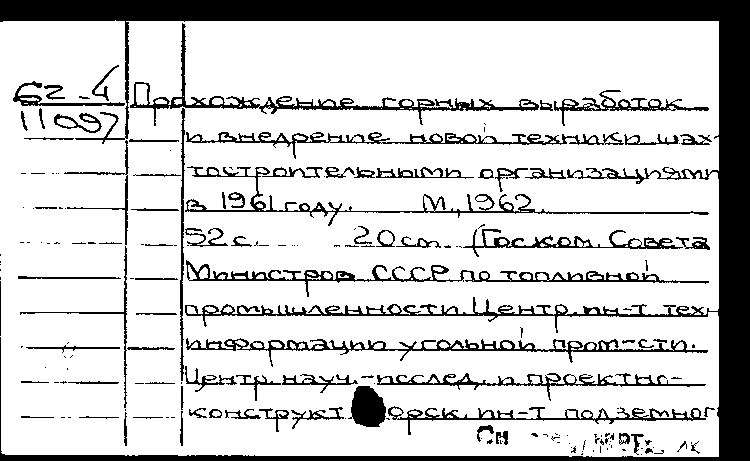 62-4
11097
Прохождение горных выработок
и внедрение новой техники шах-
тостроительными организациями
в 1961 году. М., 1962.
52 с. 20 см. (Госком. Совета
Министров СССР по топливной
промышленности. Центр. ин-т техн.
информации угольной пром-сти.
Центр. науч.-исслед. и проектно-
конструкт. горск. ин-т подземног
См